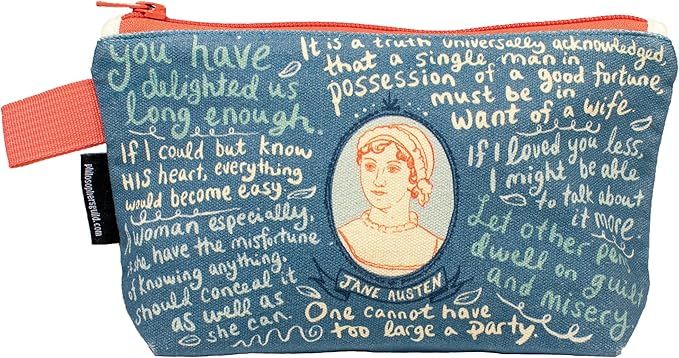 you have
delighted us
long enough.
It is a truth universally acknowledged,
that a single man in
possession of a good fortune,
must be in
want of a wife.
If I could but know
HIS heart, everything
would become easy.
If I loved you less,
I might be able
to talk about
it more.
A woman especially,
if she have the misfortune
of knowing anything,
should conceal it
as well as
she can.
Let other pens
dwell on guilt
and misery
JANE AUSTEN
One cannot have
too large a party.
philosophersguild.com